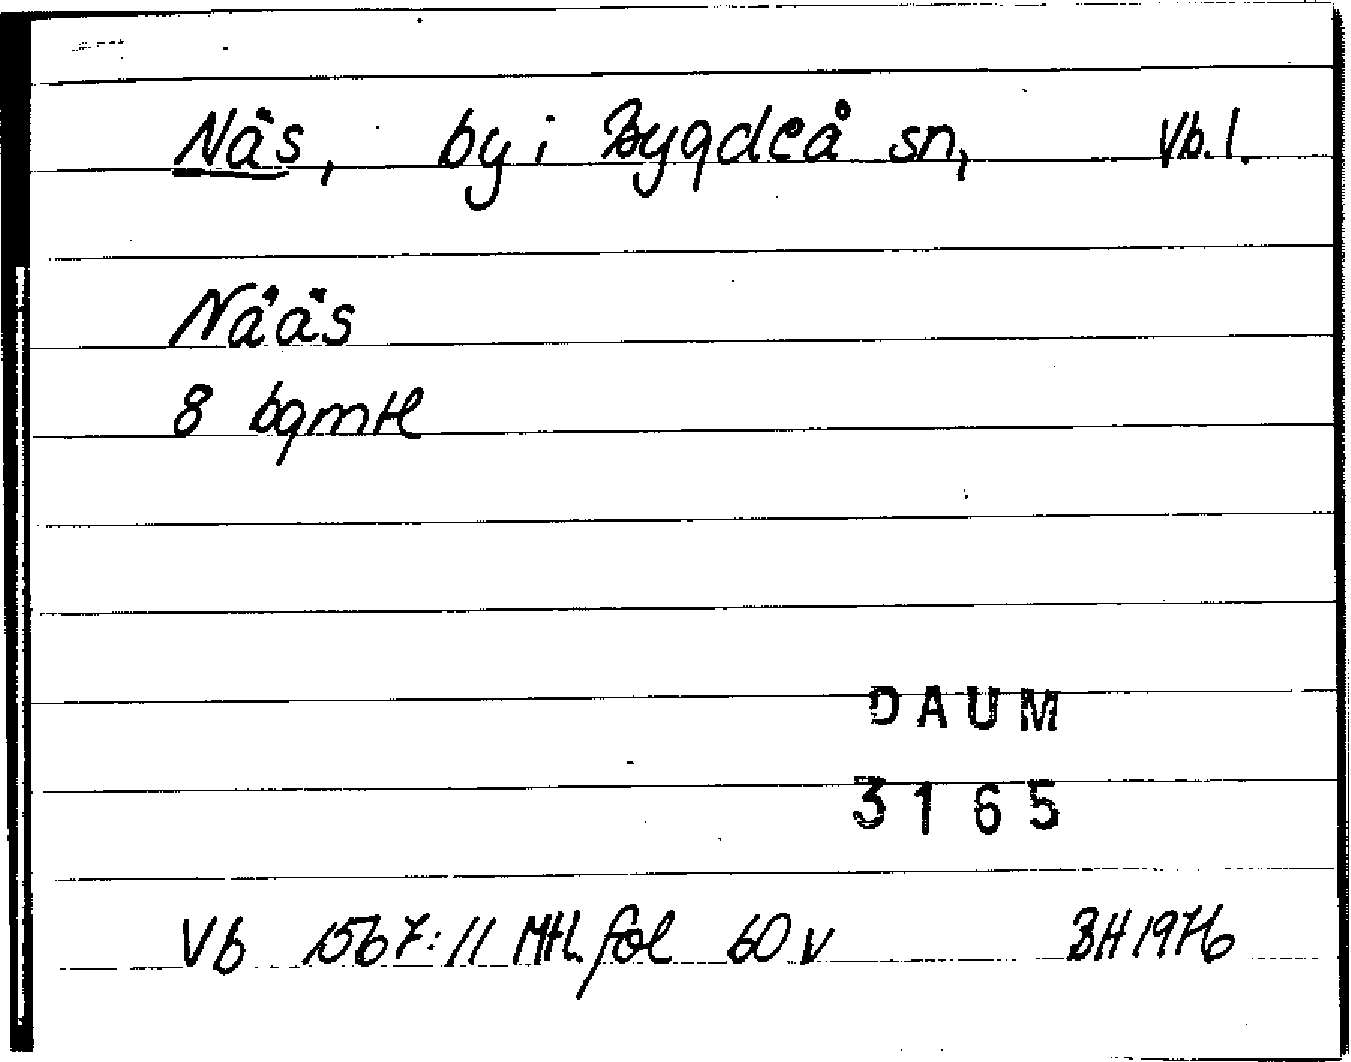 Näs, by i Bygdeå sn, Vb. l.
Nääs
8 bgmtl
DAUM
3165
Vb 1567:11 Mtl. fol 60 v BH 1976